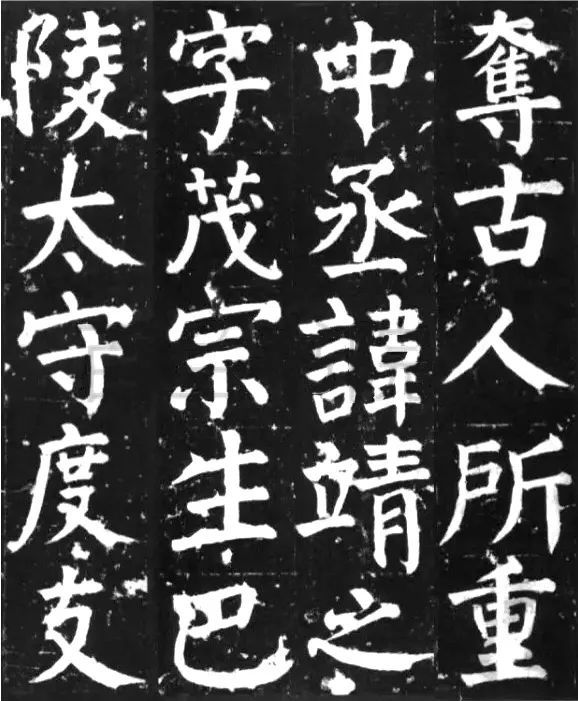 奪古人所重
中丞諱靖之
字茂宗生巴
陵太守度支